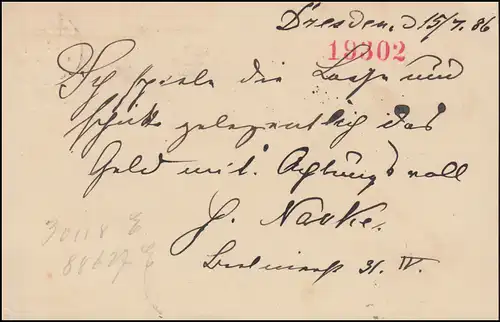 Dresden, d 15/7. 86
19302
Ich spiele die Loose und
schicke gelegentlich das
Geld mit. Achtungsvoll
Nacke.
31. IV.
30118 E
88627 E